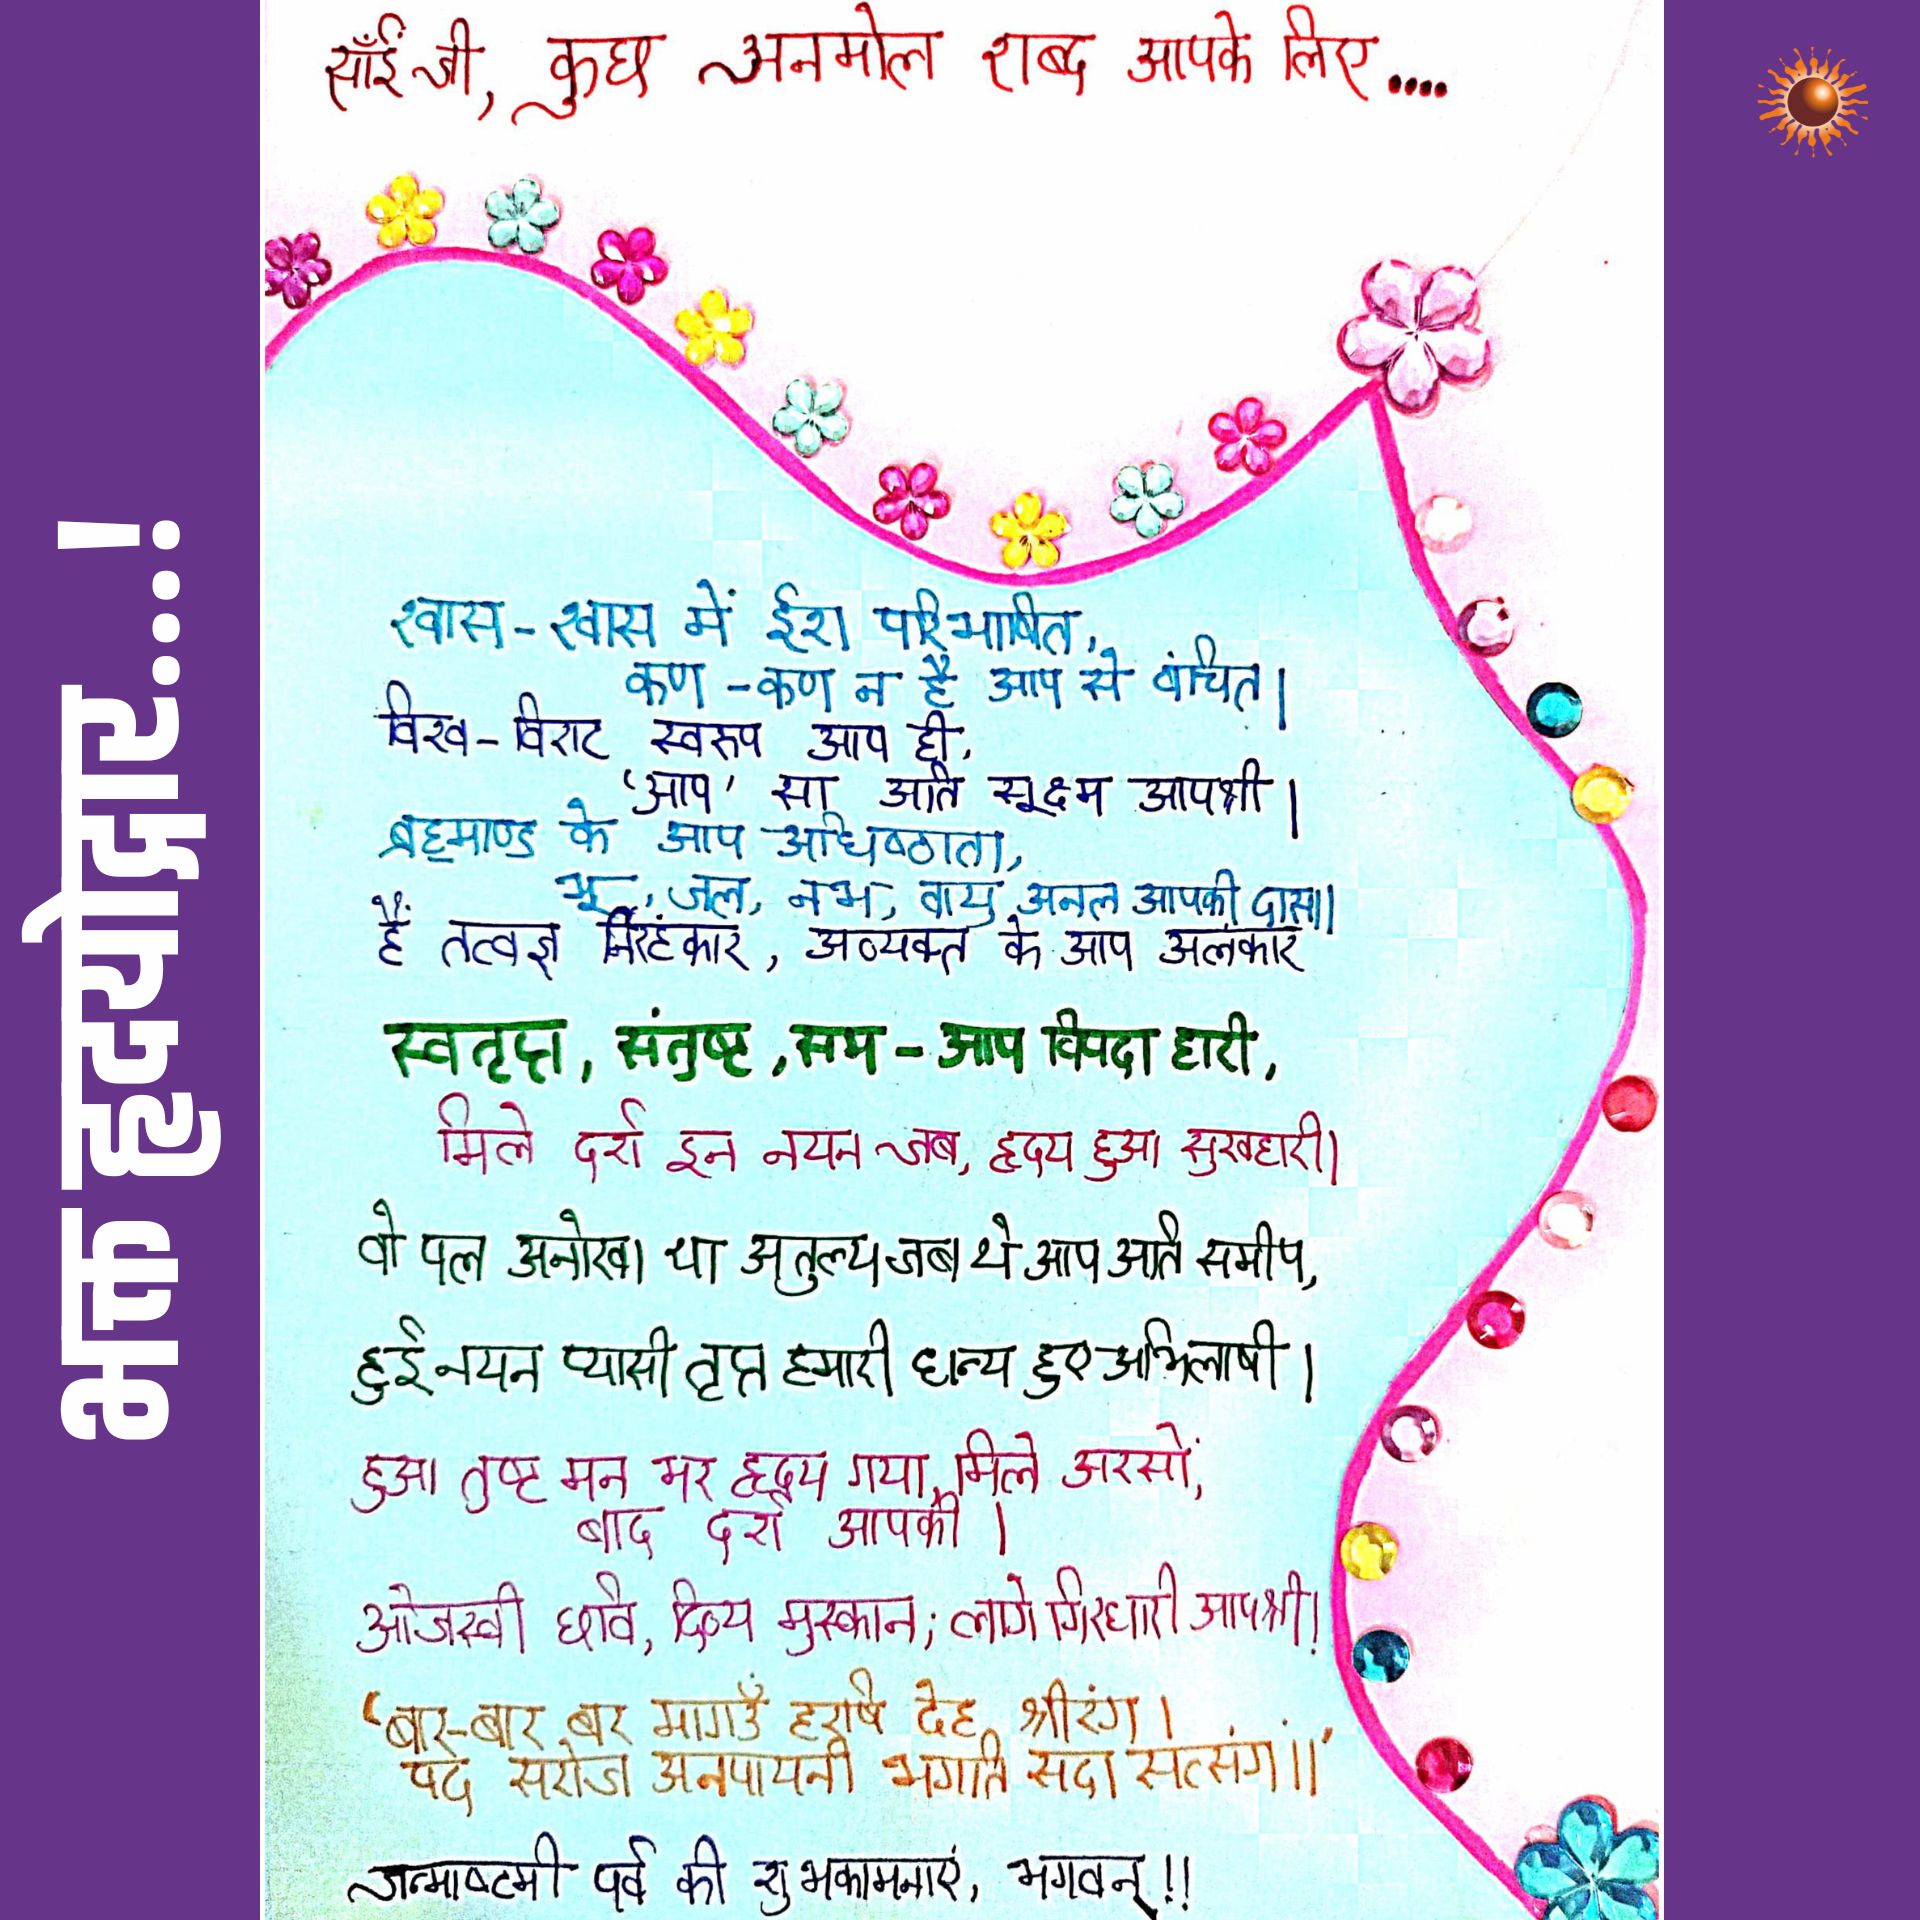 साँईं जी, कुछ अनमोल शब्द आपके लिए....
भक्त हृदयोद्गार...!
श्वास-श्वास में ईश परिभाषित,
कण-कण न है आप से वंचित।
विश्व-विराट स्वरूप आप ही,
'आप' सा अति सूक्ष्म आपश्री।
ब्रह्माण्ड के आप अधिष्ठाता,
भू, जल, नभ, वायु अनल आपकी दासा।
हैं तत्वज्ञ निरंहकार, अव्यक्त के आप अलंकार
स्वतृप्त, संतुष्ट, सम - आप विपदा हारी,
मिले दर्श इन नयन जब, हृदय हुआ सुखहारी।
वो पल अनोखा था अतुल्य जब थे आप अति समीप,
हुई नयन प्यासी तृप्त हमारी धन्य हुए अभिलाषी।
हुआ तुष्ट मन भर हृदय गया, मिले अरसों,
बाद दर्श आपकी।
ओजस्वी छवि, दिव्य मुस्कान; लागे गिरधारी आपश्री!
'बार-बार बर मागउँ हरषि देह श्रीरंग।
पद सरोज अनपायनी भगति सदा सत्संग॥'
जन्माष्टमी पर्व की शुभकामनाएं, भगवन्!!